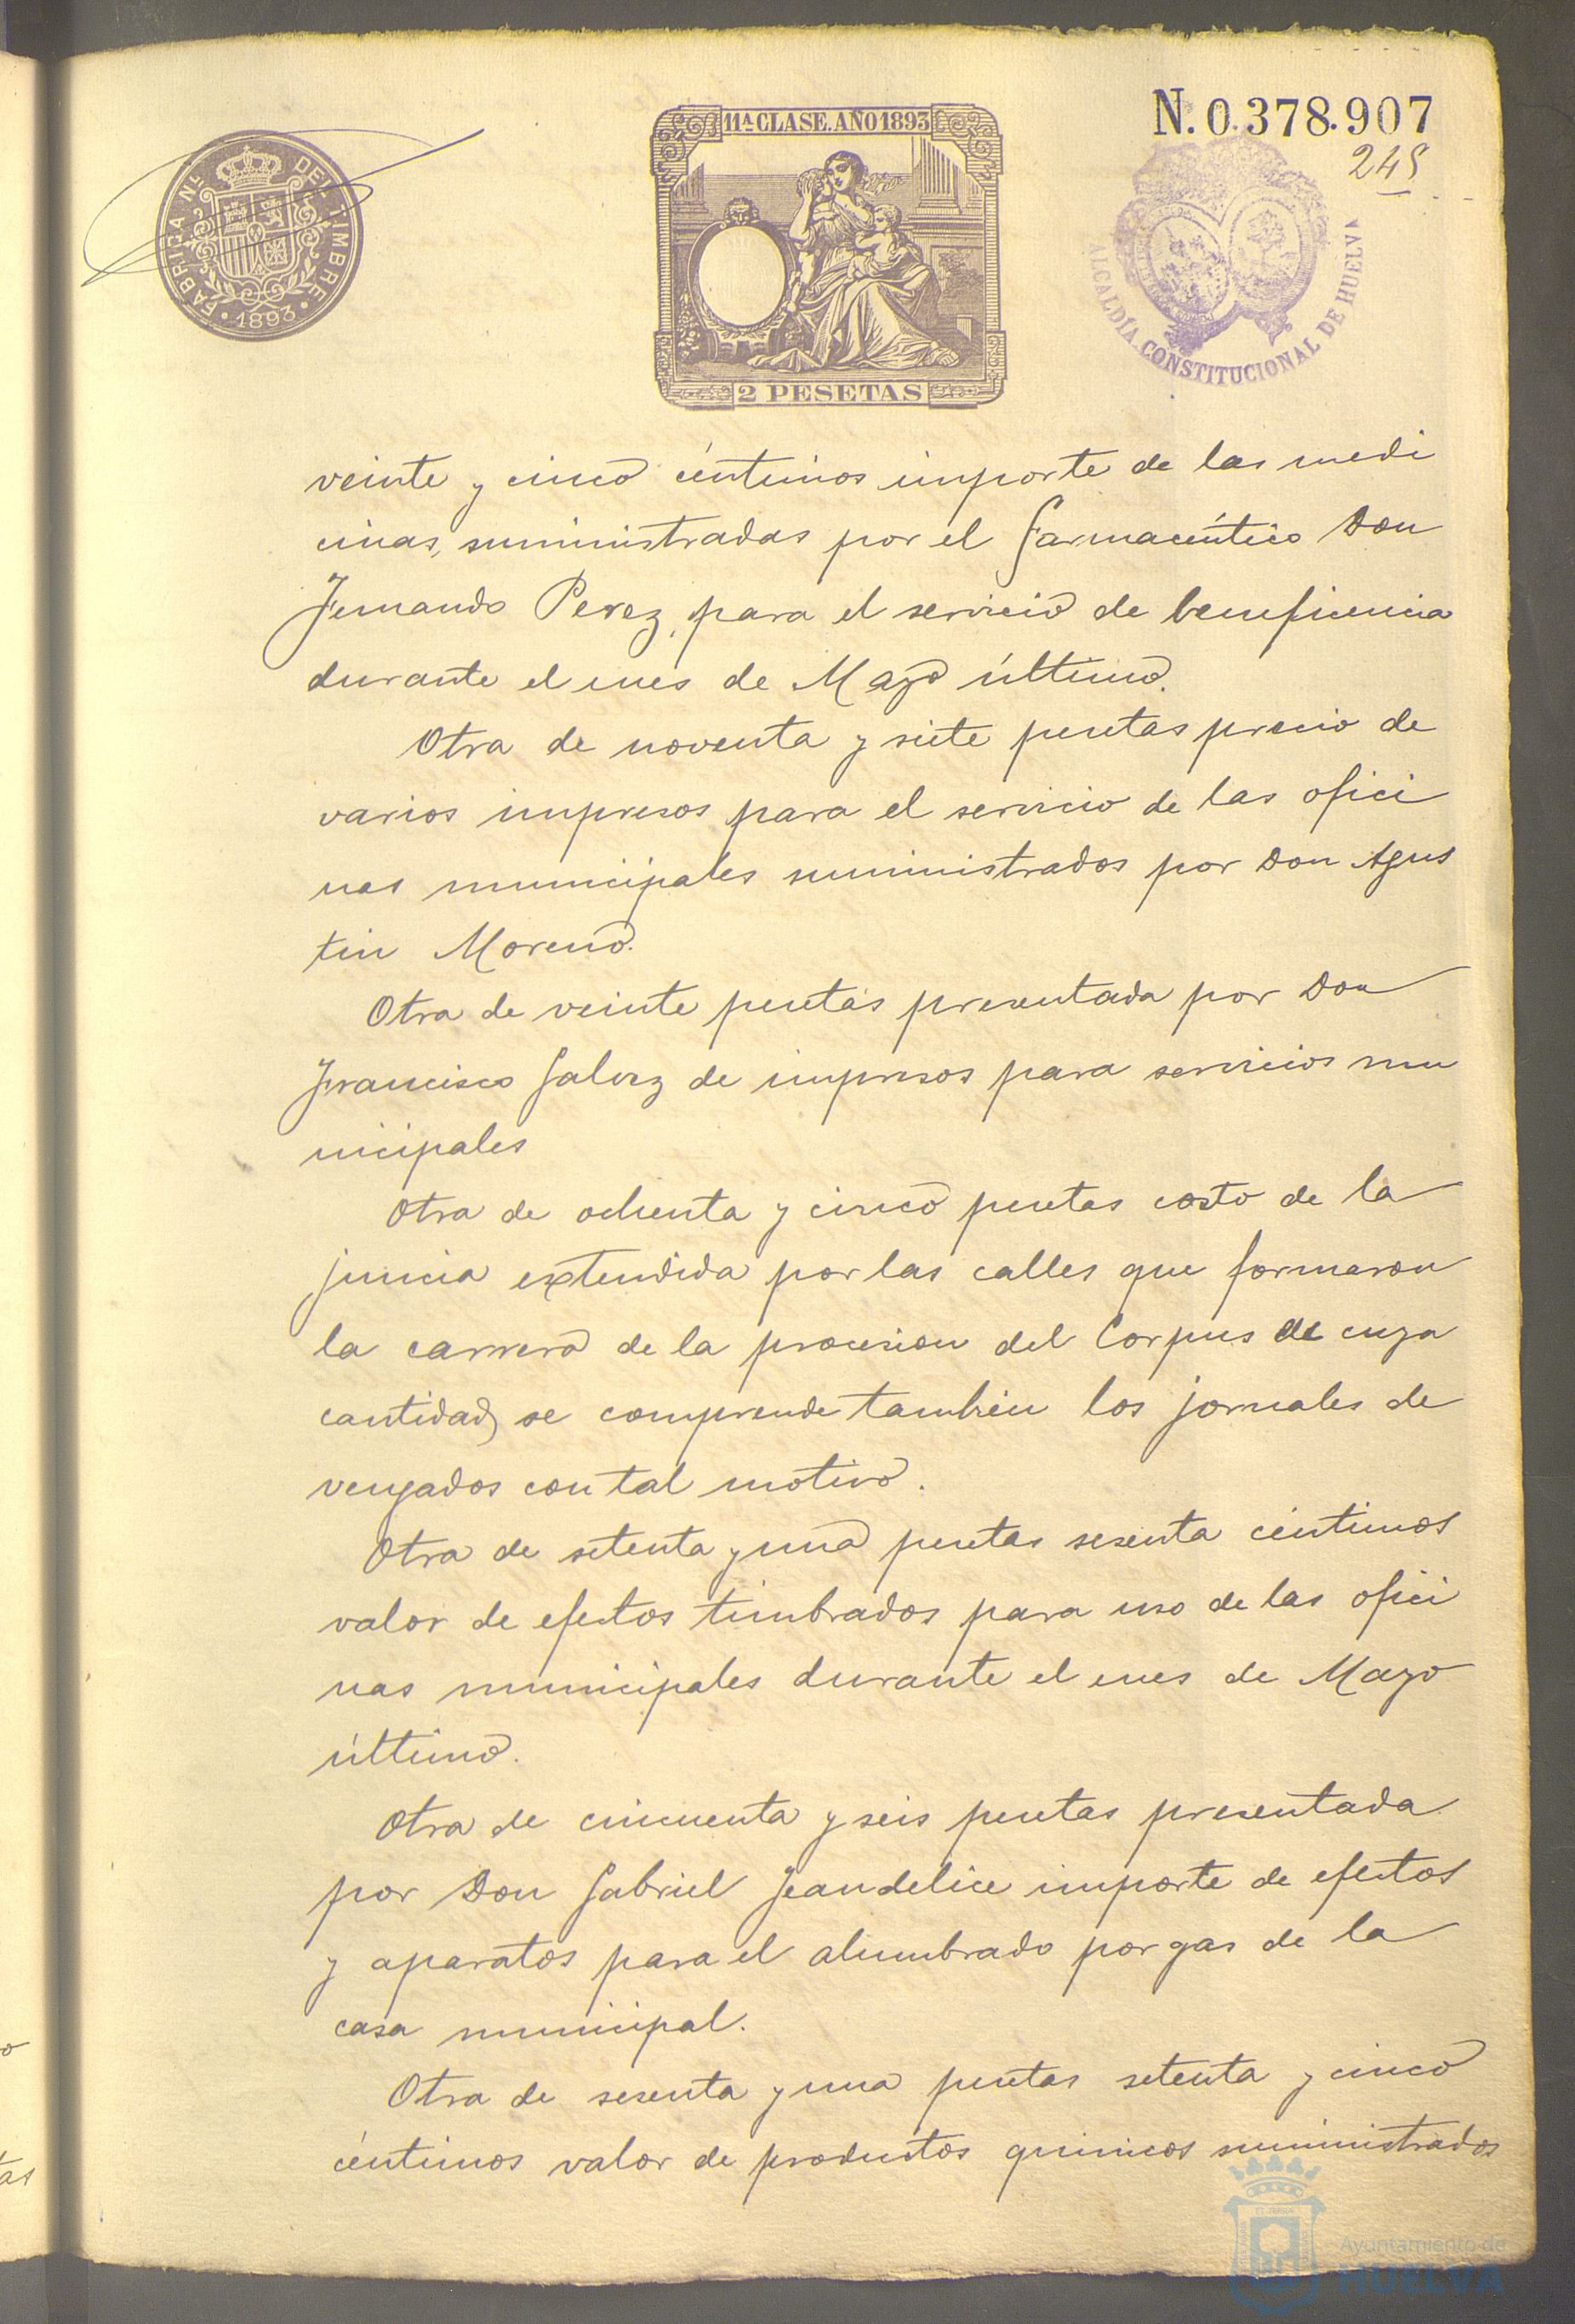 N. 0.378.907
245
11ª CLASE. AÑO 1893
FABRICA NL. DEL TIMBRE
1893
2 PESETAS
ALCALDÍA CONSTITUCIONAL DE HUELVA
veinte y cinco céntimos importe de las medi
cinas, suministradas por el farmacéutico Don
Fernando Perez, para el servicio de beneficencia
durante el mes de Mayo último.
Otra de noventa y siete pesetas precio de
varios impresos para el servicio de las ofici
nas municipales suministrados por Don Agus
tin Moreno.
Otra de veinte pesetas presentada por Don
Francisco Galvez de impresos para servicios mu
nicipales
Otra de ochenta y cinco pesetas costo de la
juncia extendida por las calles que formaron
la carrera de la procesion del Corpus de cuya
cantidad, se comprende tambien los jornales de
vengados con tal motivo.
Otra de setenta y una pesetas sesenta céntimos
valor de efectos timbrados para uso de las ofici
nas municipales durante el mes de Mayo
último.
Otra de cincuenta y seis pesetas presentada
por Don Gabriel Jeandelice importe de efectos
y aparatos para el alumbrado por gas de la
casa municipal.
Otra de sesenta y una pesetas setenta y cinco
céntimos valor de productos quimicos suministrados
Ayuntamiento de
HUELVA
o
tas